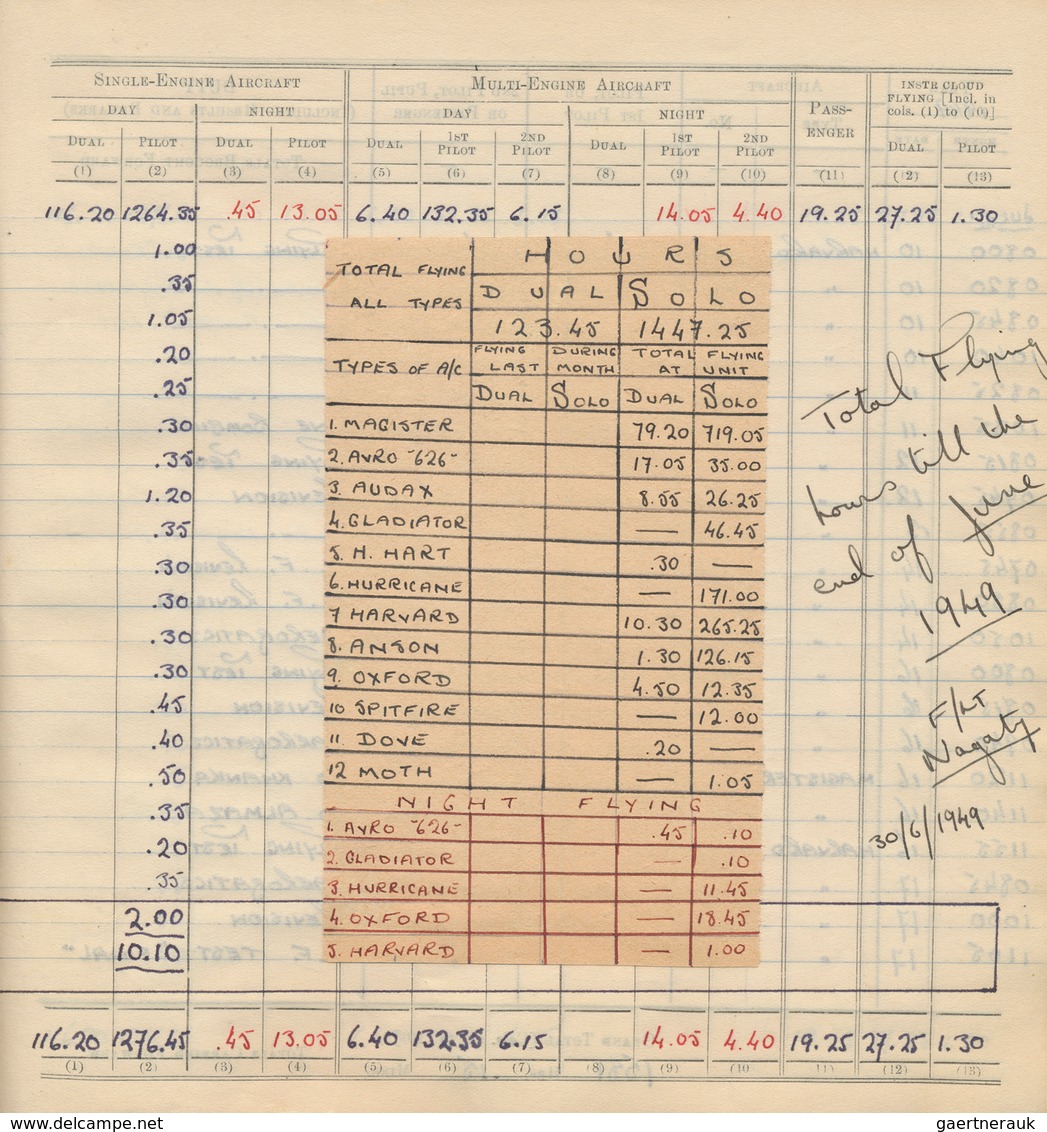 SINGLE-ENGINE AIRCRAFT MULTI-ENGINE AIRCRAFT PASS-ENGER INSTR CLOUD FLYING [Incl. in cols. (1) to (10)]
DAY NIGHT DAY NIGHT
DUAL PILOT DUAL PILOT DUAL 1ST PILOT 2ND PILOT DUAL 1ST PILOT 2ND PILOT DUAL PILOT
(1) (2) (3) (4) (5) (6) (7) (8) (9) (10) (11) (12) (13)
116.20 1264.35 .45 13.05 6.40 132.35 6.15 14.05 4.40 19.25 27.25 1.30
1.00
.35
1.05
.20
.25
.30
.35
1.20
.35
.30
.30
.30
.30
.45
.40
.50
.35
.20
.35
2.00
10.10
TOTAL FLYING ALL TYPES HOURS
DUAL SOLO
123.45 1447.25
TYPES OF A/C FLYING DURING LAST MONTH TOTAL FLYING AT UNIT
DUAL SOLO DUAL SOLO
1. MAGISTER 79.20 719.05
2. AVRO -626- 17.05 35.00
3. AUDAX 8.55 26.25
4. GLADIATOR — 46.45
5. H. HART .30 —
6. HURRICANE — 171.00
7 HARVARD 10.30 265.25
8. ANSON 1.30 126.15
9. OXFORD 4.50 12.35
10 SPITFIRE — 12.00
11. DOVE .20 —
12 MOTH — 1.05
NIGHT FLYING
1. AVRO -626- .45 .10
2. GLADIATOR — .10
3. HURRICANE — 11.45
4. OXFORD — 18.45
5. HARVARD — 1.00
Total Flying
hours till the
end of June
1949
F/LT
Nagaty
30/6/1949
116.20 1276.45 .45 13.05 6.40 132.35 6.15 14.05 4.40 19.25 27.25 1.30
(1) (2) (3) (4) (5) (6) (7) (8) (9) (10 (11) (12) (13)
gaertnerauk